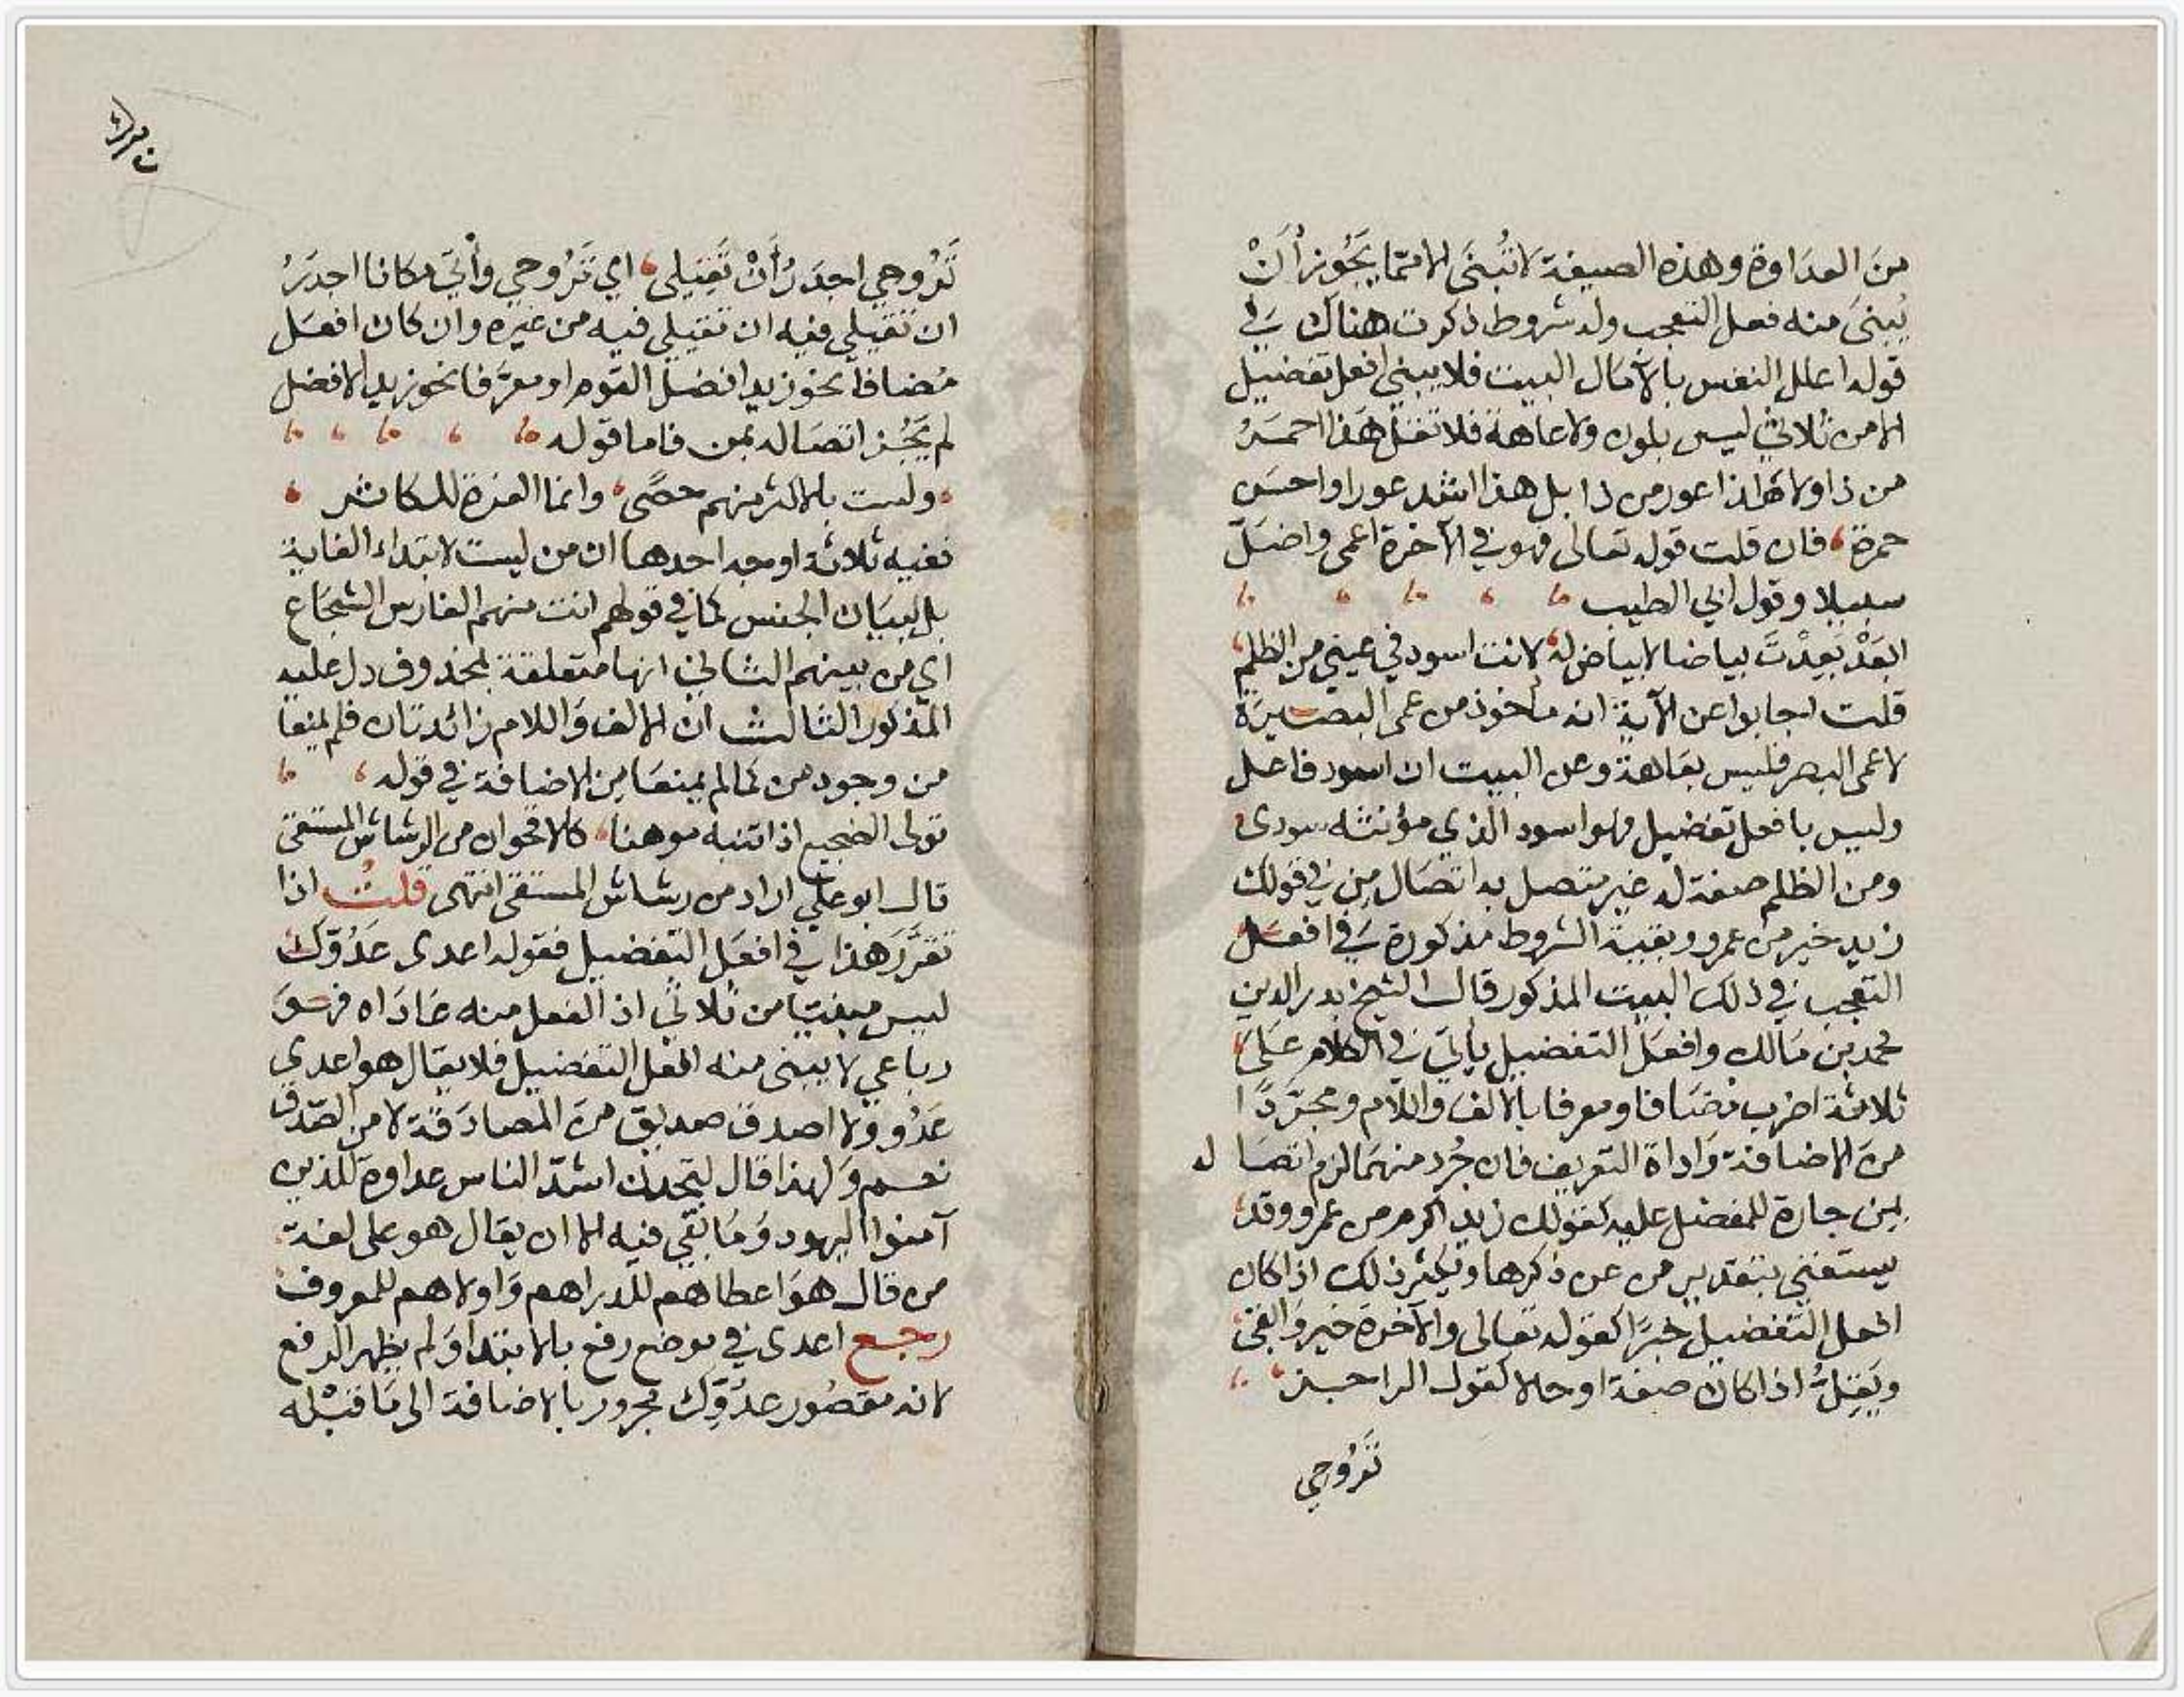 من العداوة وهذه الصيغة لا تُبنى الا ممّا يَجُوز أن
يُبنى منه فعل التعجب وله شروط ذكرت هناك في
قوله اعلل النفس بالآمال البيت فلا يبنى افعل تفضيل
الا من ثلاثي ليس بلون ولا عاهة فلا تقل هذا احمر
من ذا ولا هذا اعور من ذا بل هذا اشد عورا واحسن
حمرة، فان قلت قوله تعالى فهو في الآخرة اعمى واضل
سبيلا وقول ابي الطيب
ابعَدْ بَعِدْتَ بياضا لا بياض له، لانت اسود في عيني من الظلم
قلت اجابوا عن الآية انه مأخوذ من عمى البصيرة
لا عمى البصر فليس بعاهة وعن البيت ان اسود فاعل
وليس بافعل تفضيل فهو اسود الذي مؤنثه سودى
ومن الظلم صفة له غير متصل به اتصال مِن في قولك
زيد خير من عمرو وبقية الشروط مذكورة في افعل
التعجب في ذلك البيت المذكور قال الشيخ بدر الدين
محمد بن مالك وافعل التفضيل يأتي في الكلام على
ثلاثة اضرب مضافا ومعرفا بالالف واللام ومجرّدًا
من الاضافة واداة التعريف فان جُرد منهما لزم اتصاله
بمن جارة للمفضل عليه كقولك زيد اكرم من عمرو وقد
يستغني بتقدير من عن ذكرها ويكثر ذلك اذا كان
افعل التفضيل خبرًا كقوله تعالى والآخرة خير وابقى
ويَقِلُّ اذا كان صفة او حالا كقول الراجز
تَرُوحي
تَرُوحي اجدَرُ أنْ تَقِيلي، اي تَرُوحي وأْتي مكانا اجدَرُ
ان تقيلي فيه ان تقيلي فيه من غيره وان كان افعل
مضافا نحو زيد افضل القوم او معرّفا نحو زيد الافضل
لم يَجُز اتصاله بمن فاما قوله
ولست بالاكثر منهم حصًى، وانما العزة للكاثر
ففيه ثلاثة اوجه احدها ان من ليست لابتداء الغاية
بل لبيان الجنس كما في قولهم انت منهم الفارس الشجاع
اي من بينهم الثاني انها متعلقة بمحذوف دل عليه
المذكور الثالث ان الالف واللام زائدتان فلم يمنعا
من وجود من كما لم يمنعا من الاضافة في قوله
تولى الضجيع اذا تنبه موهنا، كالاقحوان من الرشاش المستقى
قال ابو علي اراد من رشاش المستقى انتهى قلتُ اذا
تقرَّر هذا في افعل التفضيل فقوله اعدى عَدُوّك
ليس مبنيا من ثلاثي اذ الفعل منه عاداه فهو
رباعي لا يبنى منه افعل التفضيل فلا يقال هو اعدى
عدُو ولا اصدق صديق من المصادقة لا من الصّدق
نعم ولهذا قال لتجدن اشدّ الناس عداوة للذين
آمنوا اليهود ومَا بقي فيه الا ان يقال هو على لغة
من قال هو اعطاهم للدراهم واولاهم للمعروف
رجع اعدى في موضع رفع بالابتداء ولم يظهر الرفع
لانه مقصُور عدُوِّك مجرور بالاضافة الى مَا قبْله